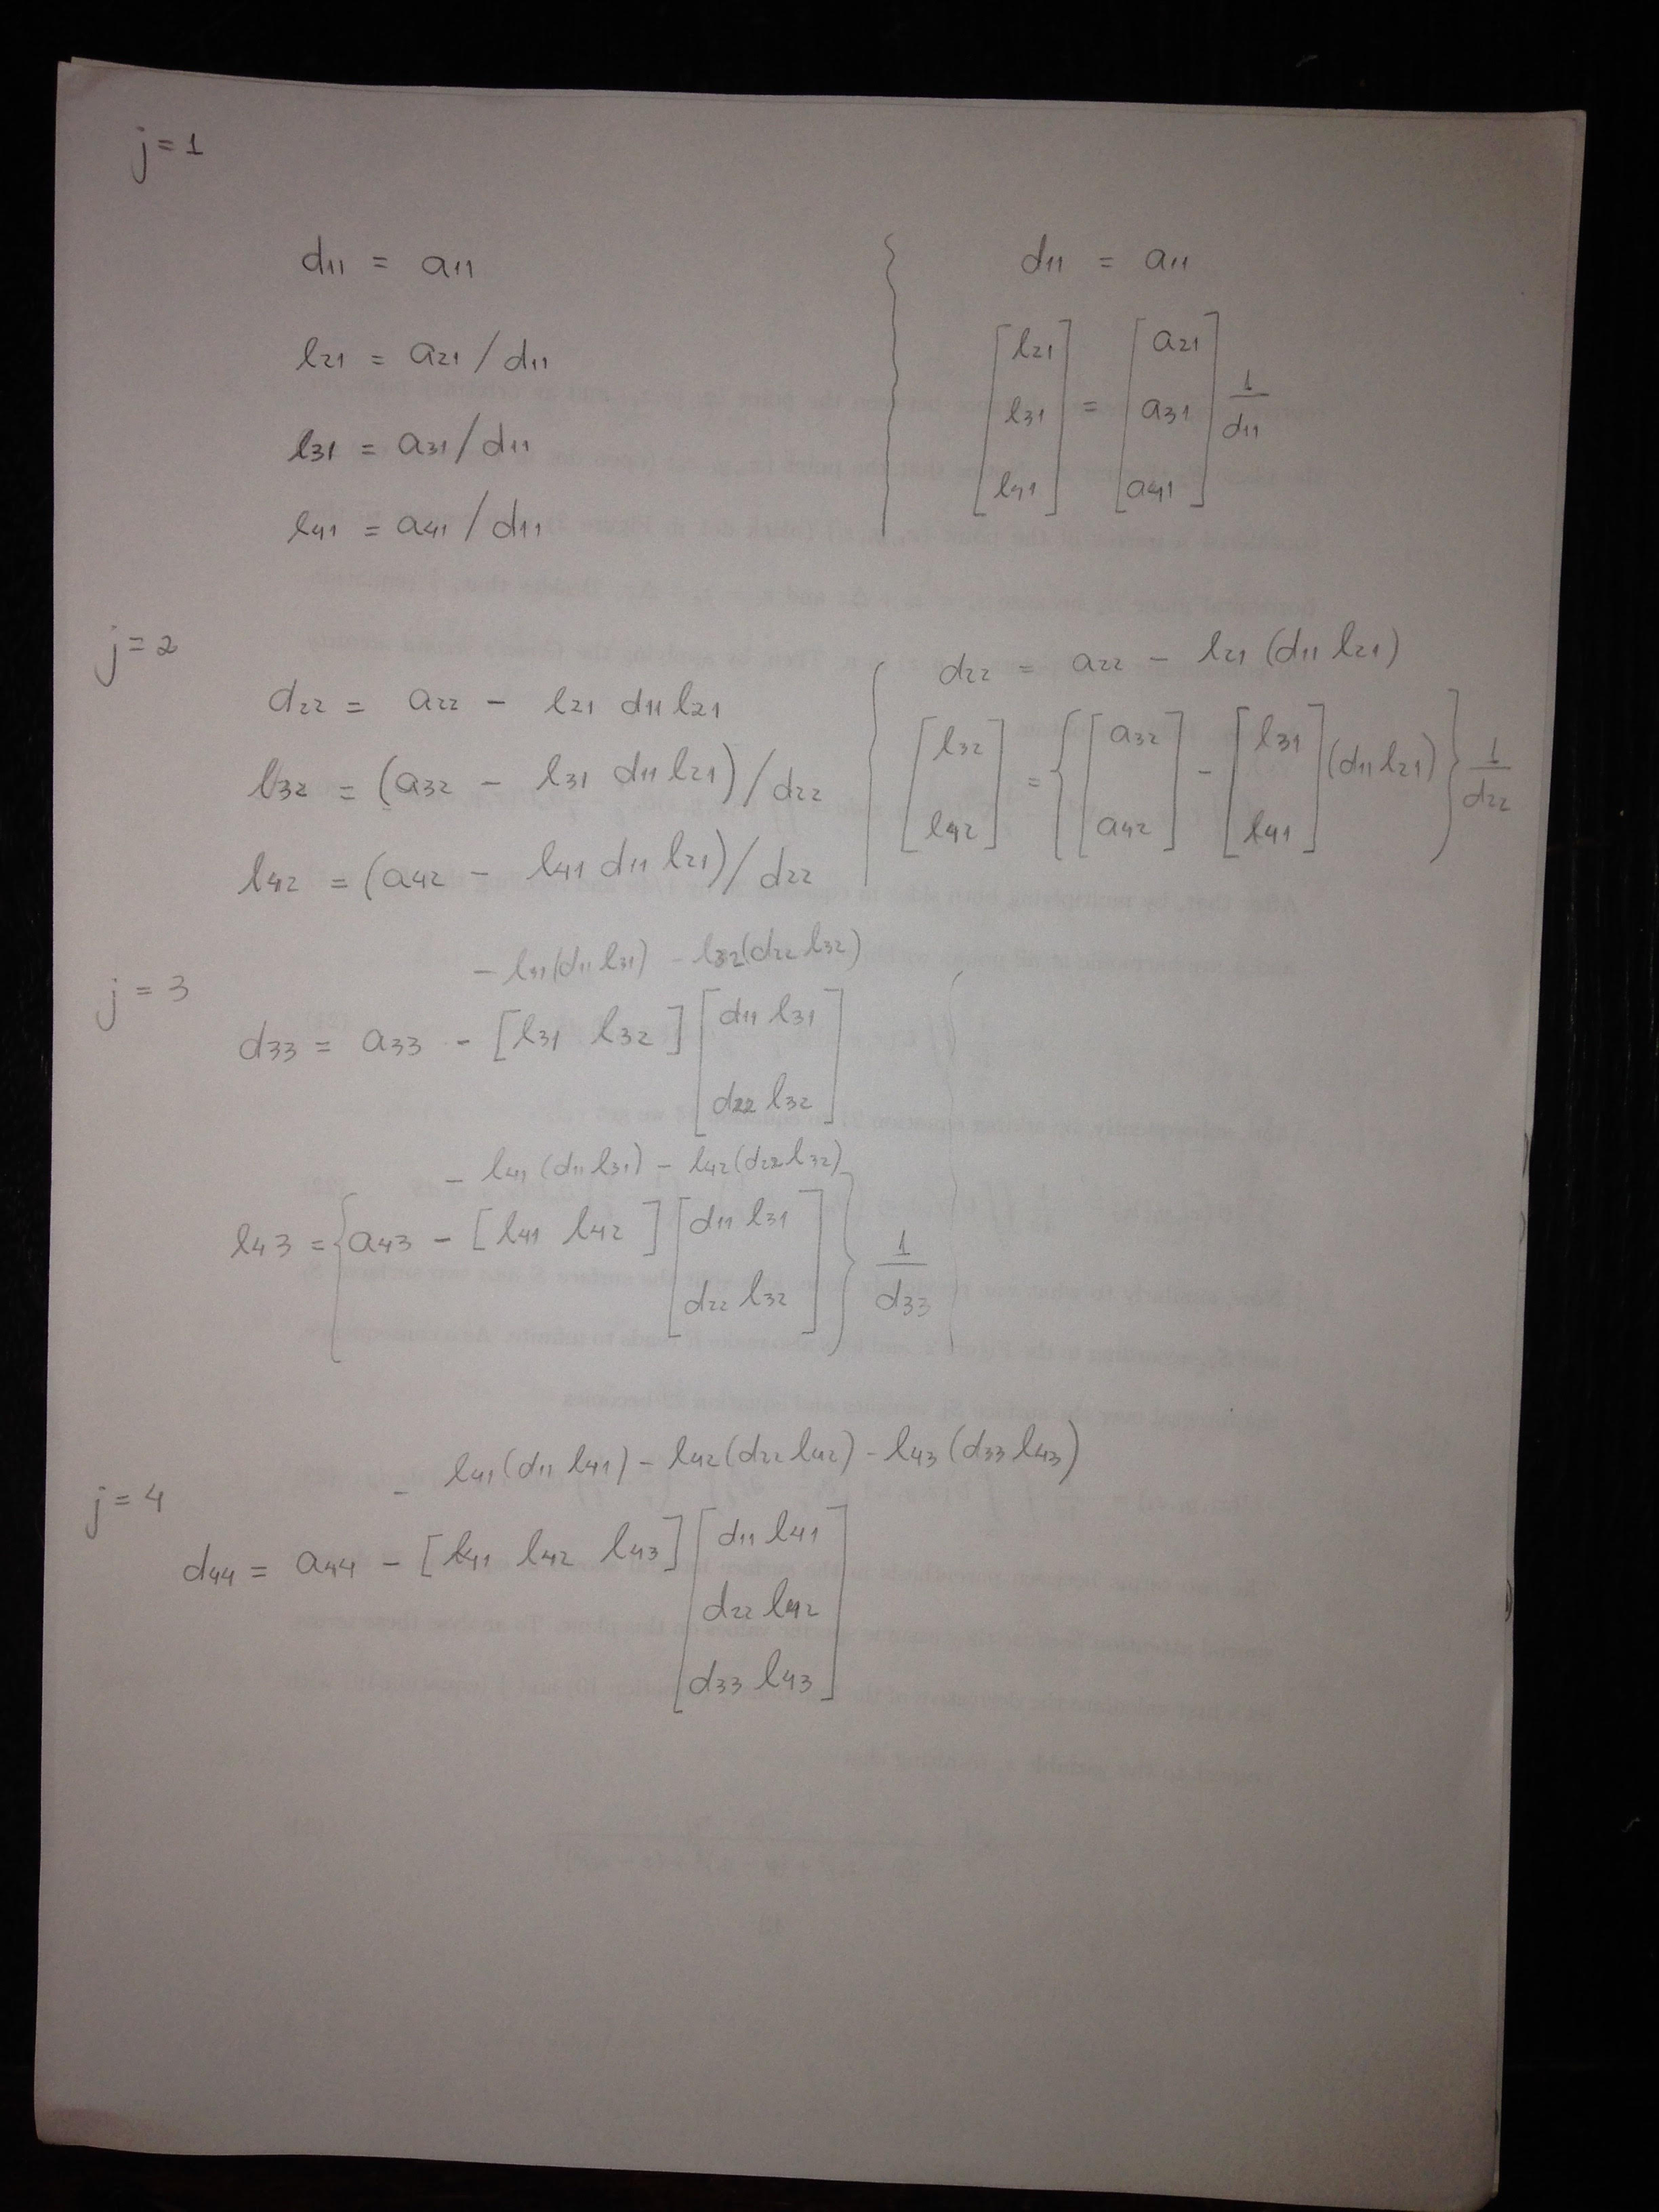 j = 1
d11 = a11
l21 = a21 / d11
l31 = a31 / d11
l41 = a41 / d11
{ d11 = a11
[ l21 l31 l41 ] = [ a21 a31 a41 ] 1/d11
j = 2
d22 = a22 - l21 d11 l21
l32 = (a32 - l31 d11 l21) / d22
l42 = (a42 - l41 d11 l21) / d22
{ d22 = a22 - l21 (d11 l21)
[ l32 l42 ] = { [ a32 a42 ] - [ l31 l41 ] (d11 l21) } 1/d22
j = 3
(d11 l31) - l32(d22 l32)
d33 = a33 - [ l31 l32 ] [ d11 l31 d22 l32 ]
- l41 (d11 l31) - l42 (d22 l32)
l43 = { a43 - [ l41 l42 ] [ d11 l31 d22 l32 ] } 1/d33
j = 4
- l41 (d11 l41) - l42 (d22 l42) - l43 (d33 l43)
d44 = a44 - [ l41 l42 l43 ] [ d11 l41 d22 l42 d33 l43 ]